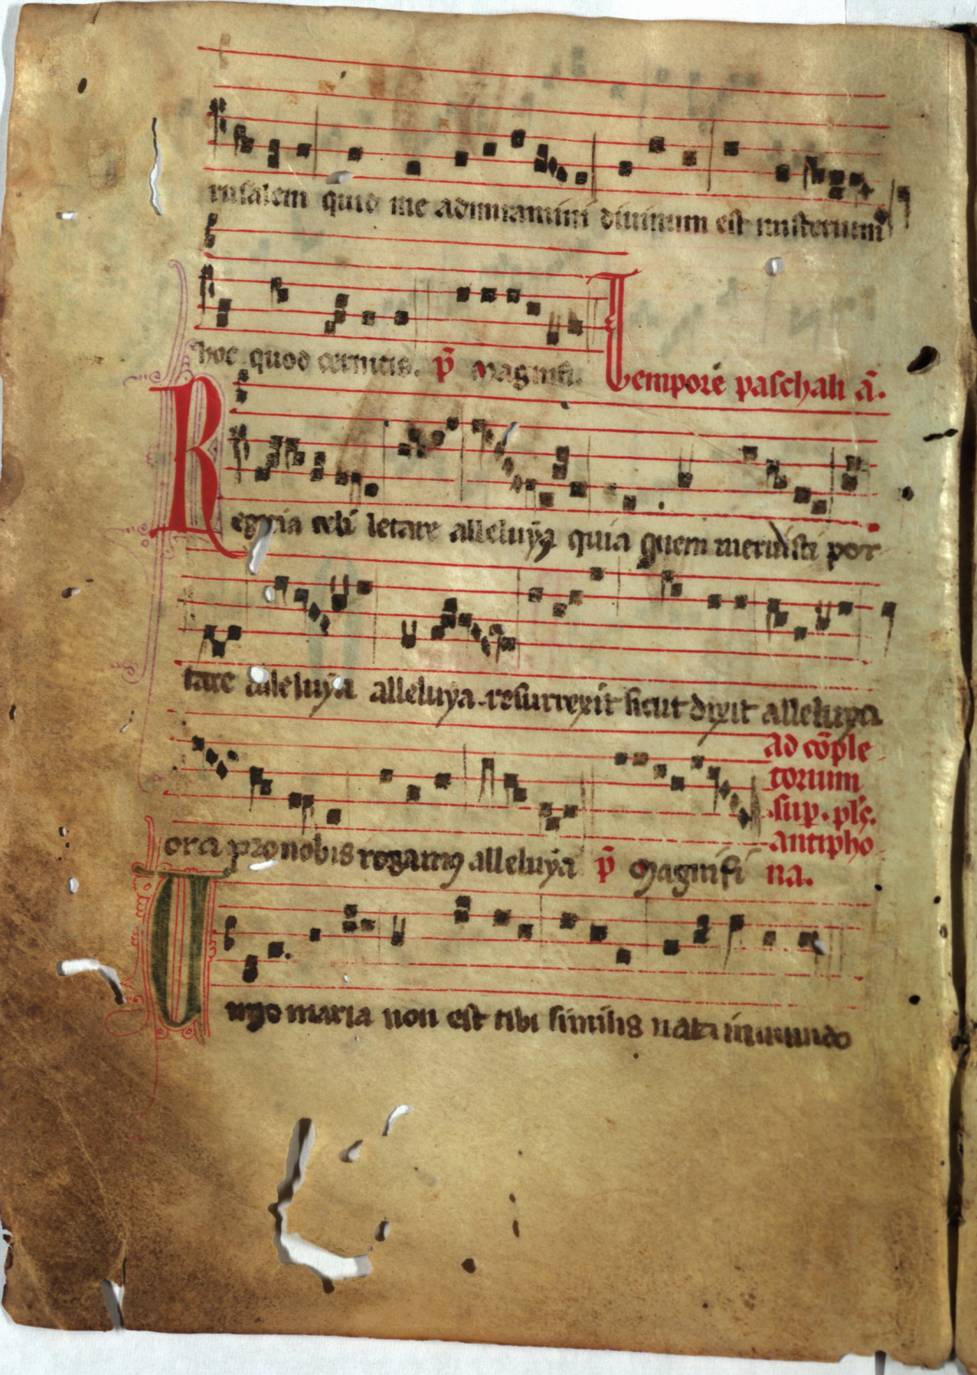 rusalem quid me admiramini diuinum est misterium
hoc quod cernitis. p̄ Magnifi. Tempore paschali ā.
Regina celi letare alleluya quia quem meruisti por
tare alleluya alleluya. resurrexit sicut dixit alleluya
ora pro nobis rogamꝰ alleluya p̄ Magnifi
ad cōple
torium
sup. ps̄.
antipho
na.
Uirgo maria non est tibi similis nata in mundo